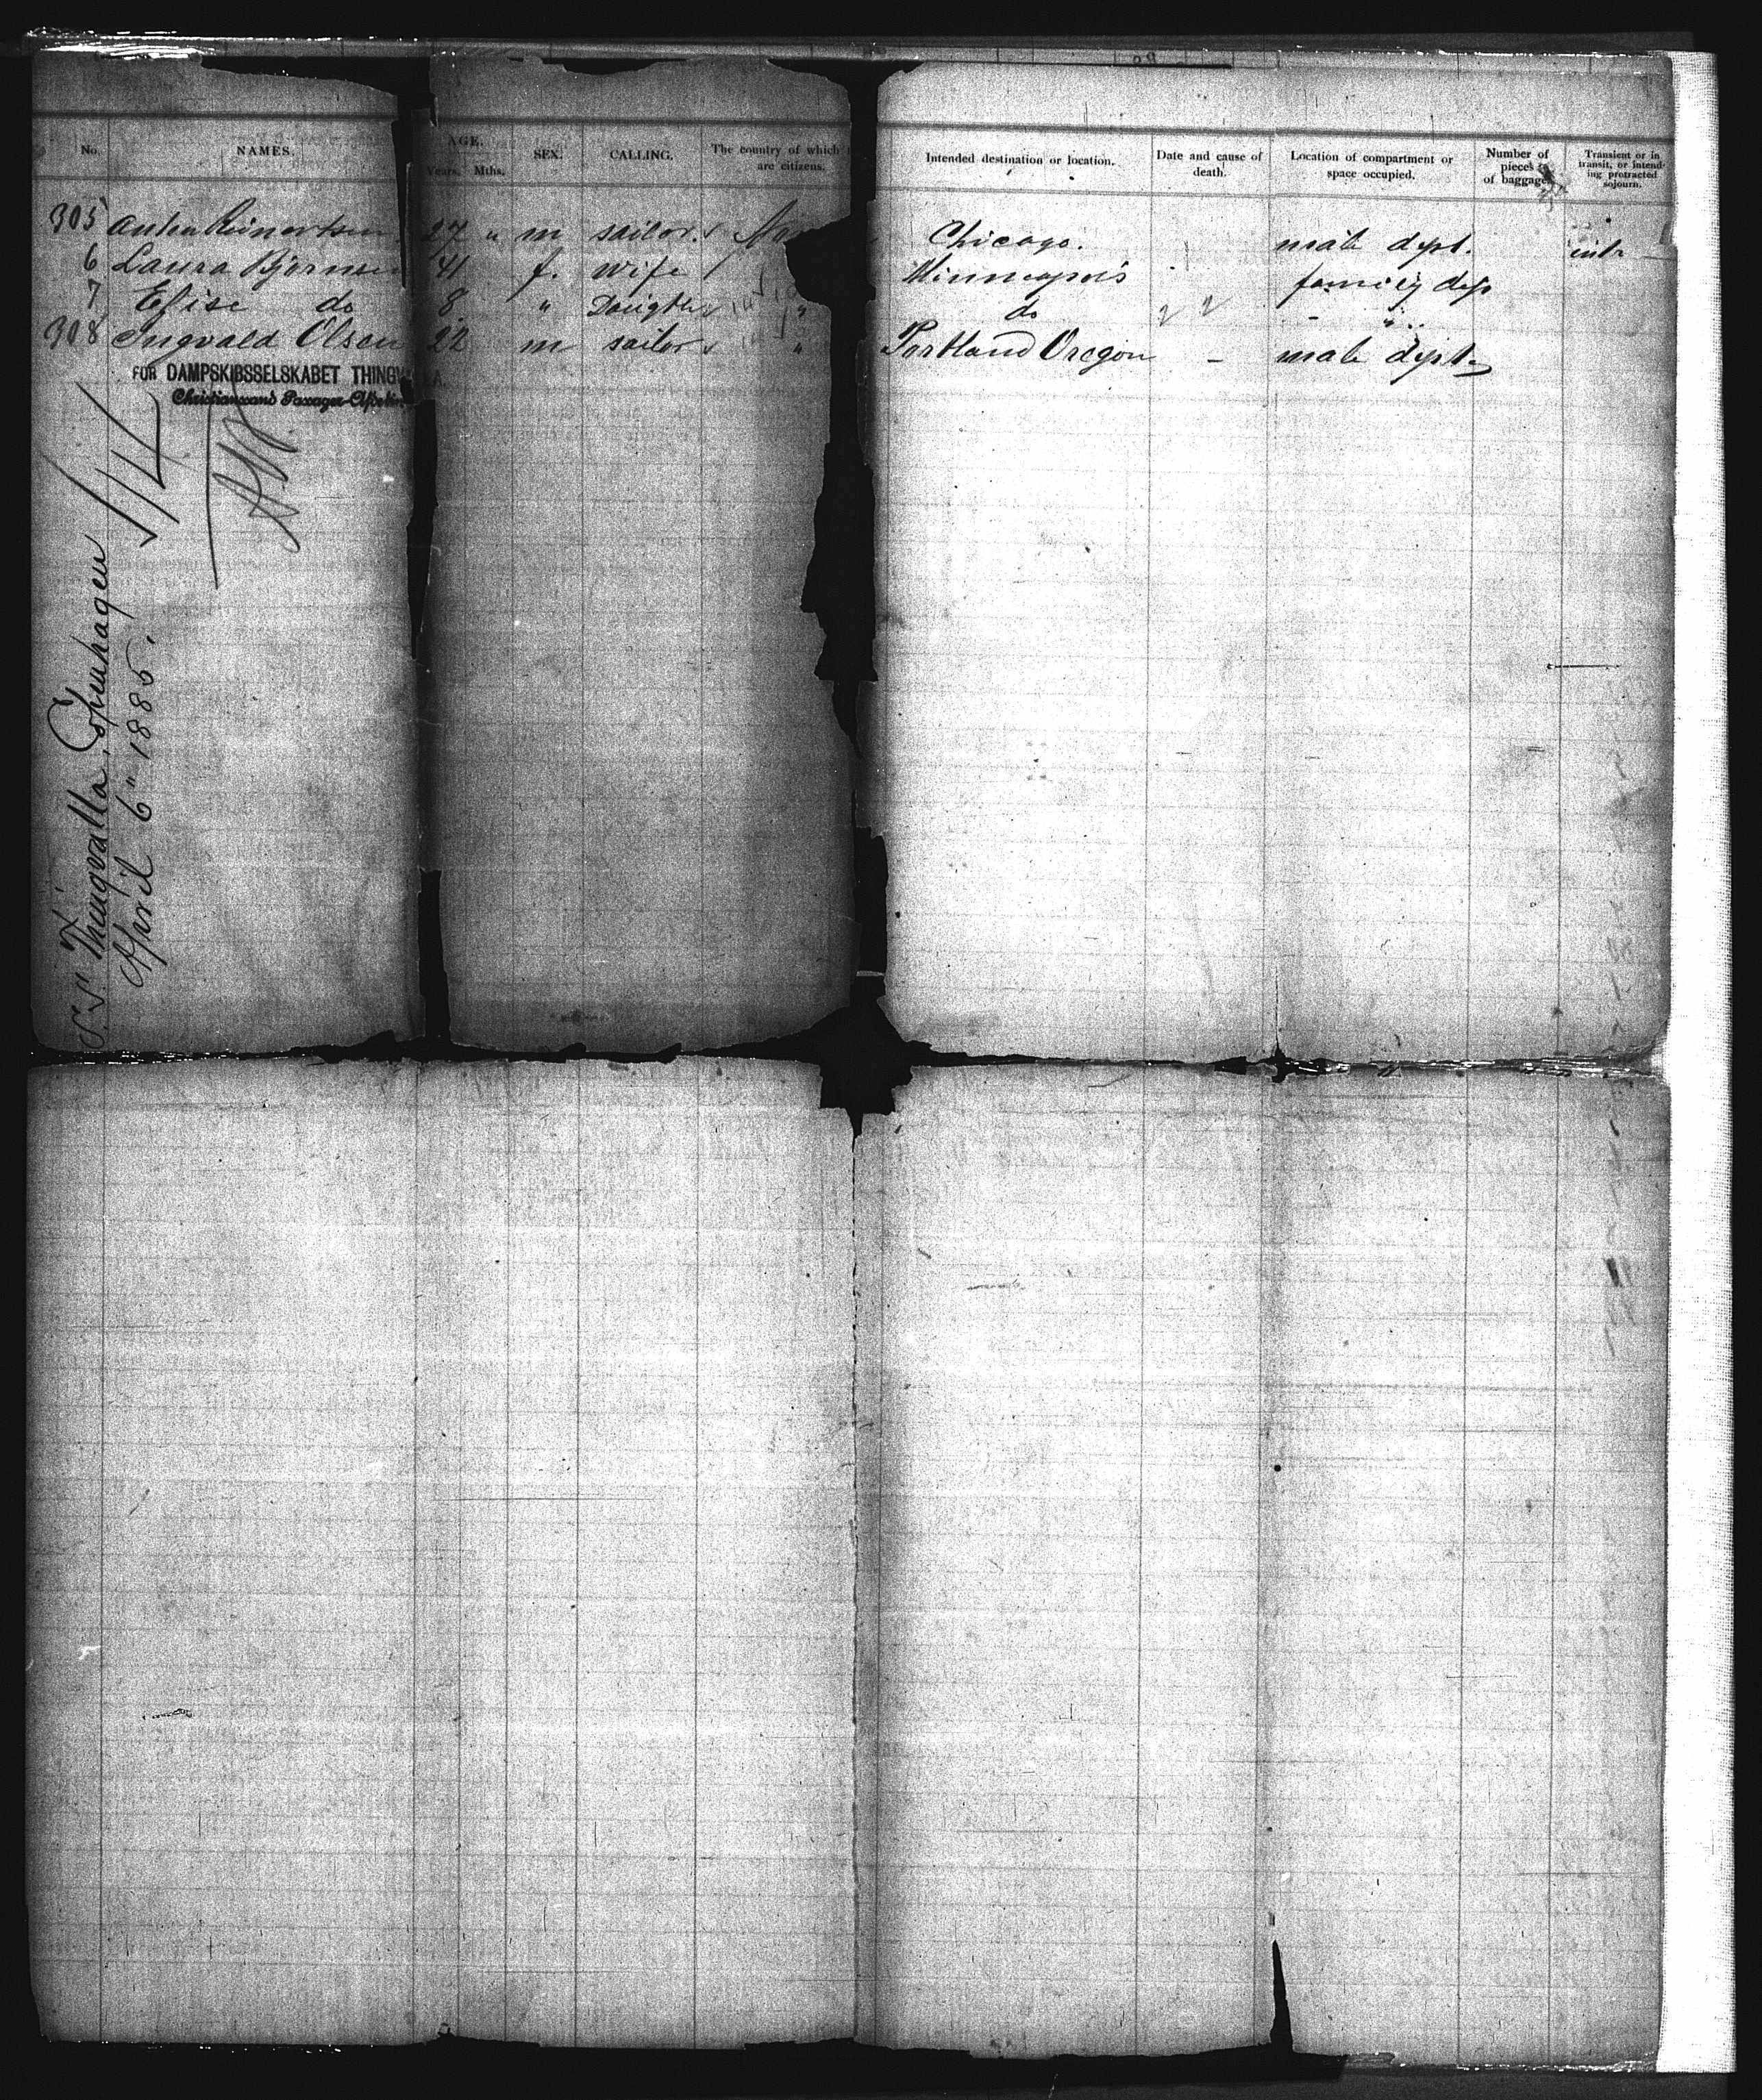 No. NAMES. AGE. Years. Mths. SEX. CALLING. The country of which are citizens. Intended destination or location. Date and cause of death. Location of compartment or space occupied. Number of pieces of baggage Transient or in transit, or intending protracted sojourn.
305 Anton Reinertsen 27 " m sailor. Chicago. male dept.
6 Laura Bjørnsen 41 f. wife Minneapolis family dep
7 Elise do 8 " Daugther " do - "
308 Ingvald Olsen 22 m sailor " Portland Oregon - male dept.
FOR DAMPSKIBSSELSKABET THINGVALLA.
Christianssand Passager-Afdeling
1/4
S.S. Thingvalla, Copenhagen
April 6" 1885.